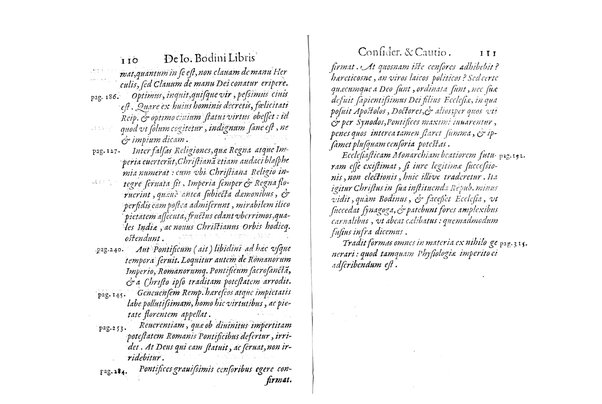 110 De Io. Bodini Libris
mat, quantum in se est, non clauam de manu Her
culis, sed Clauum de manu Dei conatur eripere.
pag. 186. Optimus, inquit, quisque vir, pessimus ciuis
est. Quare ex huius hominis decretis, fælicitati
Reip. & optimo ciuium statui virtus obesset: id
quod vt solum cogitetur, indignum sane est, ne
& impium dicam.
pag. 127. Inter falsas Religiones, quæ Regna atque Impe
ria euerterũt, Christianã etiam audaci blasphe
mia numerat: cum vbi Christiana Religio in
tegre seruata sit. Imperia semper & Regna flo
ruerint, quæ antea subiecta dæmonibus, & per
fidis eam postea admiserunt, mirabilem ilico
pietatem assecuta, fructus edant vberrimos, qua
les Indiæ, ac nouus Christianus Orbis hodieq.
ostendunt.
pag. 240. Aut Pontificum (ait) libidini ad hæc vsque
tempora seruit. Loquitur autem de Romanorum
Imperio, Romanorumq. Pontificum sacrosanctã,
& a Christo ipso traditam potestatem arrodit.
pag. 145. Geneuensem Remp. hæreseos atque impietatis
labe pollutissimam, homo hic virtutibus, ac pie
tate florentem appellat.
pag. 253. Reuerentiam, quæ ob diuinitus impertitam
potestatem Romanis Pontificibus defertur, irri
det. At Deus qui eam statuit, ac seruat, non ir-
ridebitur.
pag. 284. Pontifices grauissimis censoribus egere con-
firmat.
Consider. & Cautio. 111
firmat. At quosnam iste censores adhibebit?
hæreticosne, an viros laicos politicos? Sed certe
quæcumque a Deo sunt, ordinata sunt, nec sua
defuit sapientissimus Dei filius Ecclesiæ, in qua
posuit Apostolos, Doctores, & alios per quos vti
& per Synodos, Pontifices maximi iuuarentur,
penes quos interea tamen staret summa, & ip-
samet plusquam censoria potestas.
Ecclesiasticam Monarchiam beatiorem futu- pag. 292.
ram esse existimat, si iure legitimæ successio-
nis, non electionis, huic illiue traderetur. Ita
igitur Christus in sua instituenda Repub. minus
vidit, quàm Bodinus, & facesset Ecclesia, vt
succedat synagoga, & patebunt fores amplexibus
carnalibus, vt abeat cælibatus: quemadmodum
fusius infra dicemus.
Tradit formas omnes in materia ex nihilo ge pag. 314.
nerari: quod tamquam Physiologiæ imperito ei
adscribendum est.